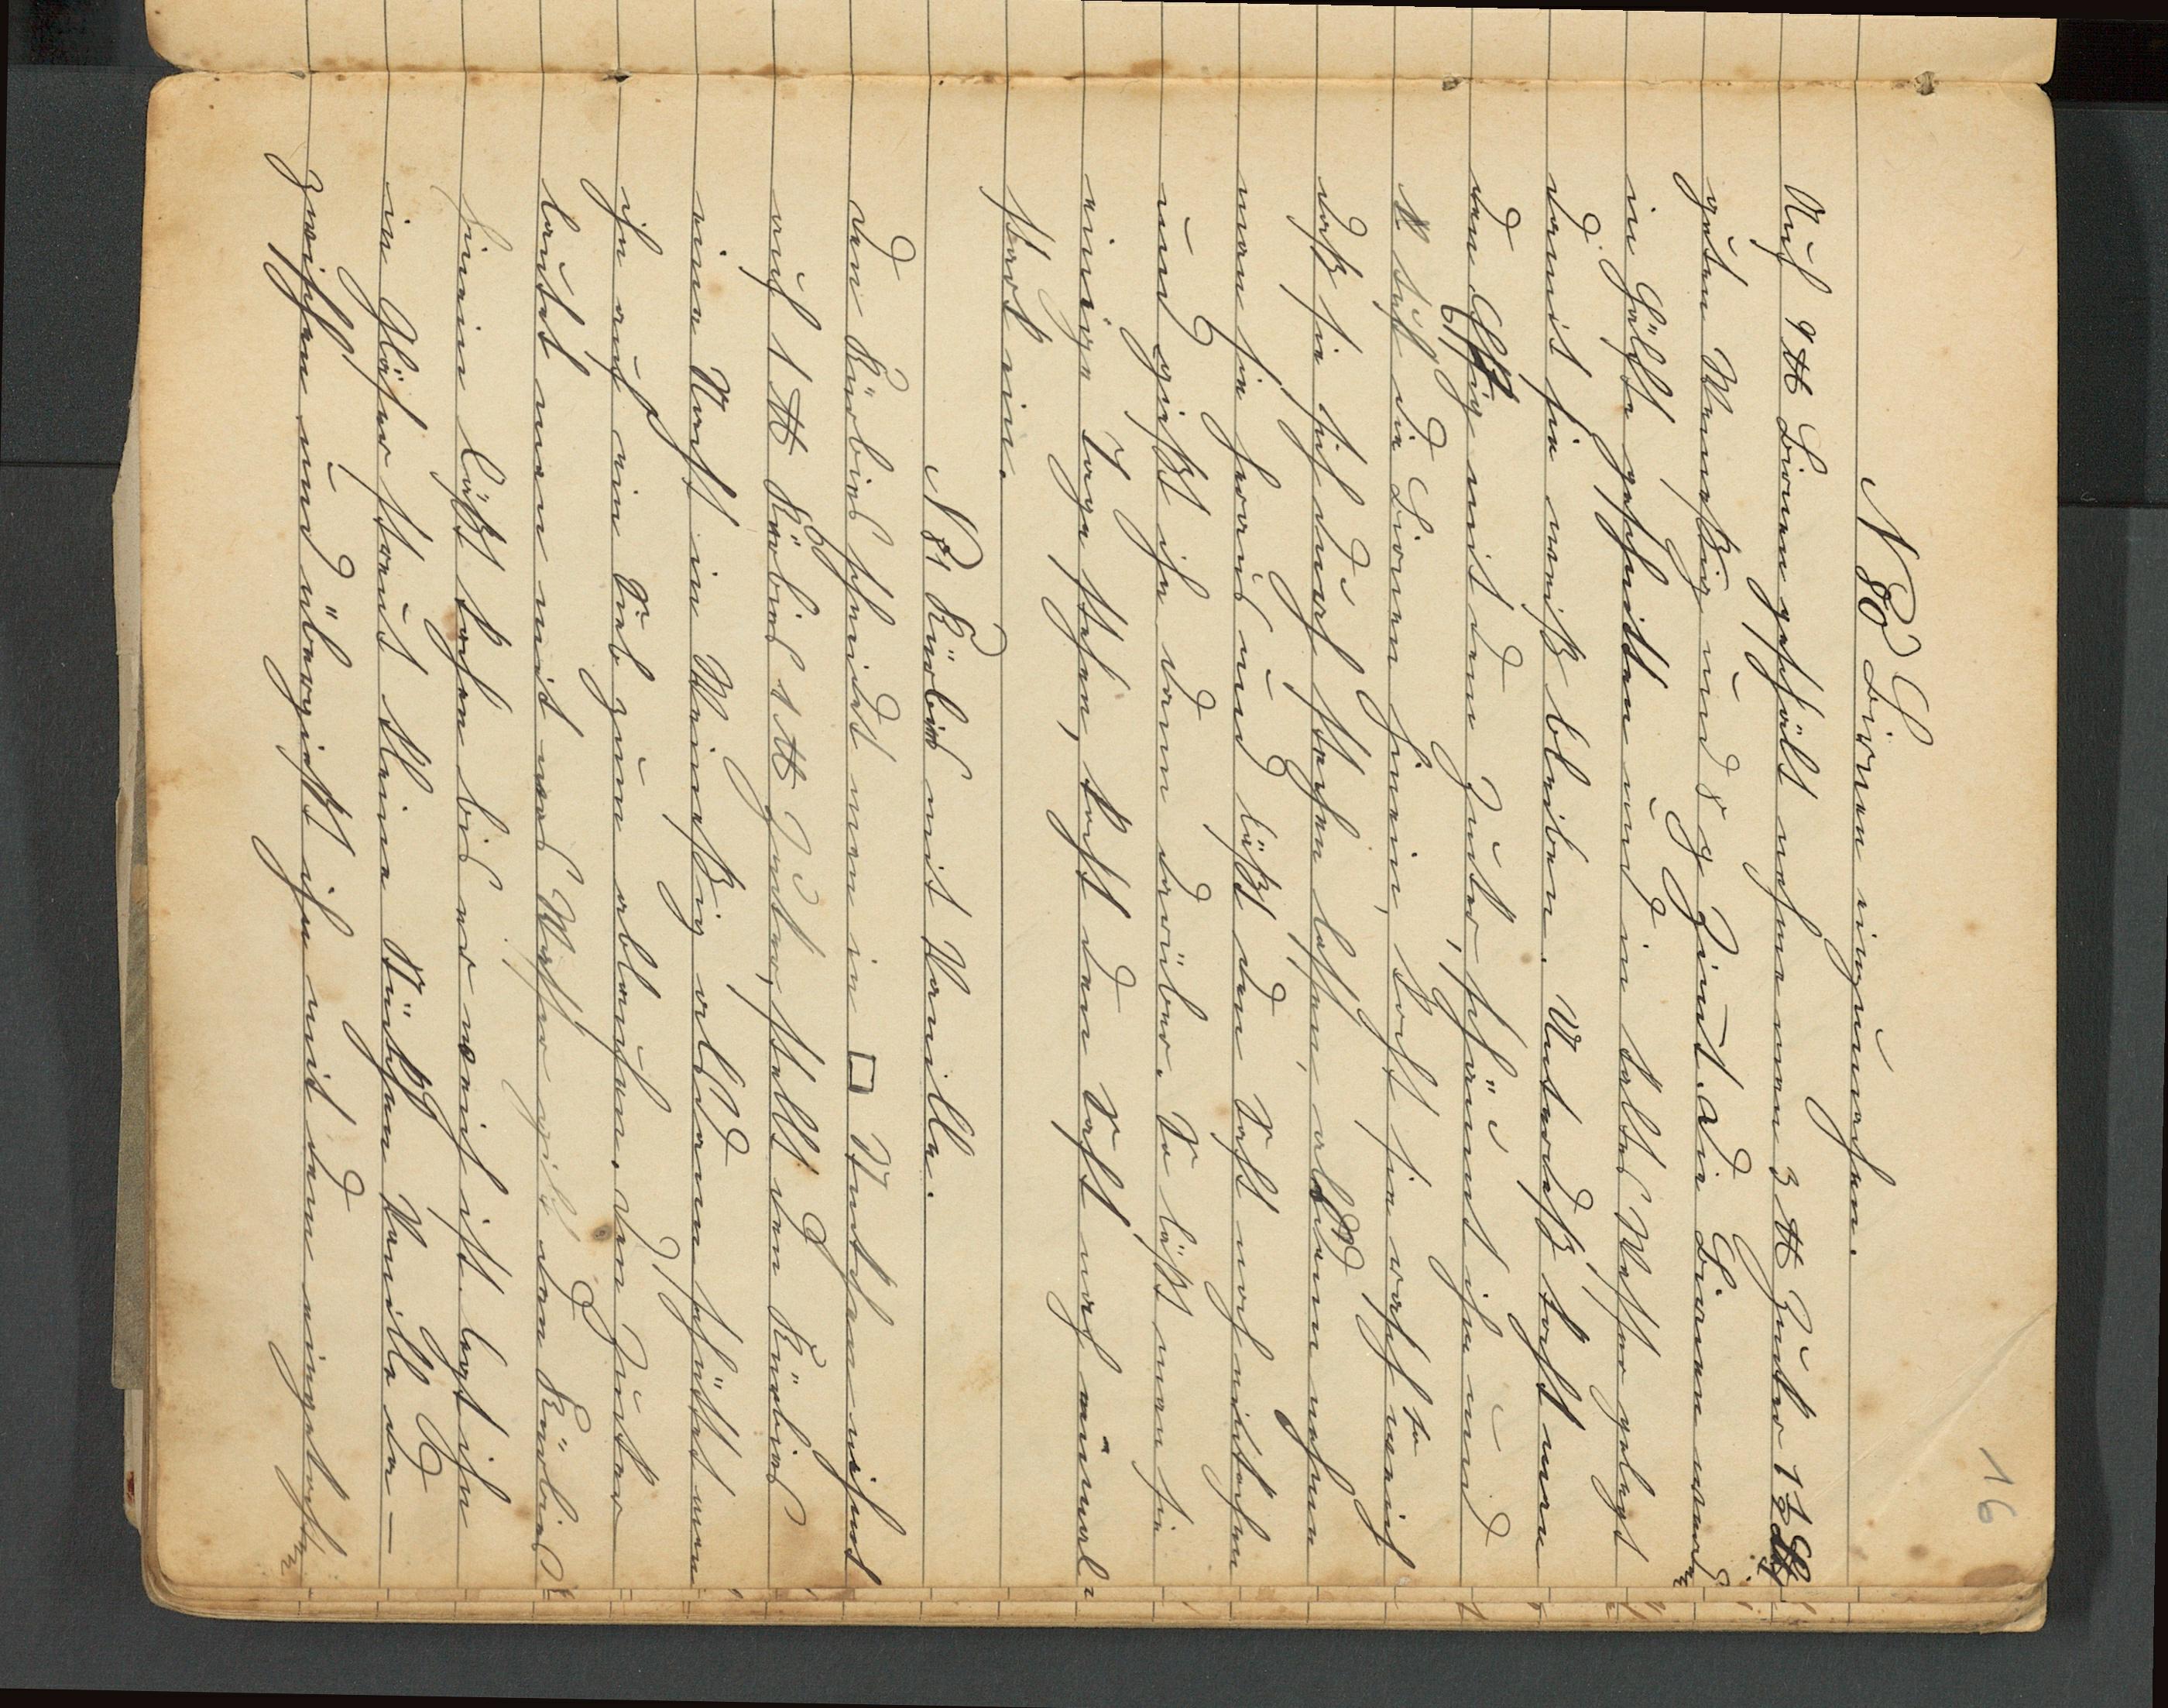 91
N 80 Birnen einzumachen.
Auf 4 ℔ Birnen geschält nehme man 3 ℔ Zucker 1½
guten Weinessig und 8 g Zimt. Die Birnen werden
in Hälfte geschnitten und in kaltes Wasser gelegt
damit sie weiß bleiben. Unterdeß kocht man
den Essig mit dem Zucker, schäumt ihn und
tuht die Birnen hinein, kocht sie rasch so weich
daß sie sich durch stechen lassen, alsdann nehme
man sie heraus und läßt den Saft noch einkochen
und gießt ihn dann darüber. So läßt man sie
einige Tage stehen, kocht den Saft noch einmal
stark ein.
N 81 Kürbis mit Vanille.
Den Kürbis schneidet man in □ Stückchen nehmt
auf 1 ℔ Kürbis 1 ℔ Zucker, stellt den Kürbis
eine Nacht in Weinessig alsdann schüttet man
ihn auf ein Sieb zum ablaufen. Den Zucker
läutet man mit was Wasser gibt den Kürbis
hinein läßt kochen bis er weich ist. legt ihn
in Gläser streut kleine Stückchen Vanille da-
zwischen und übergießt ihn mit dem eingekochten